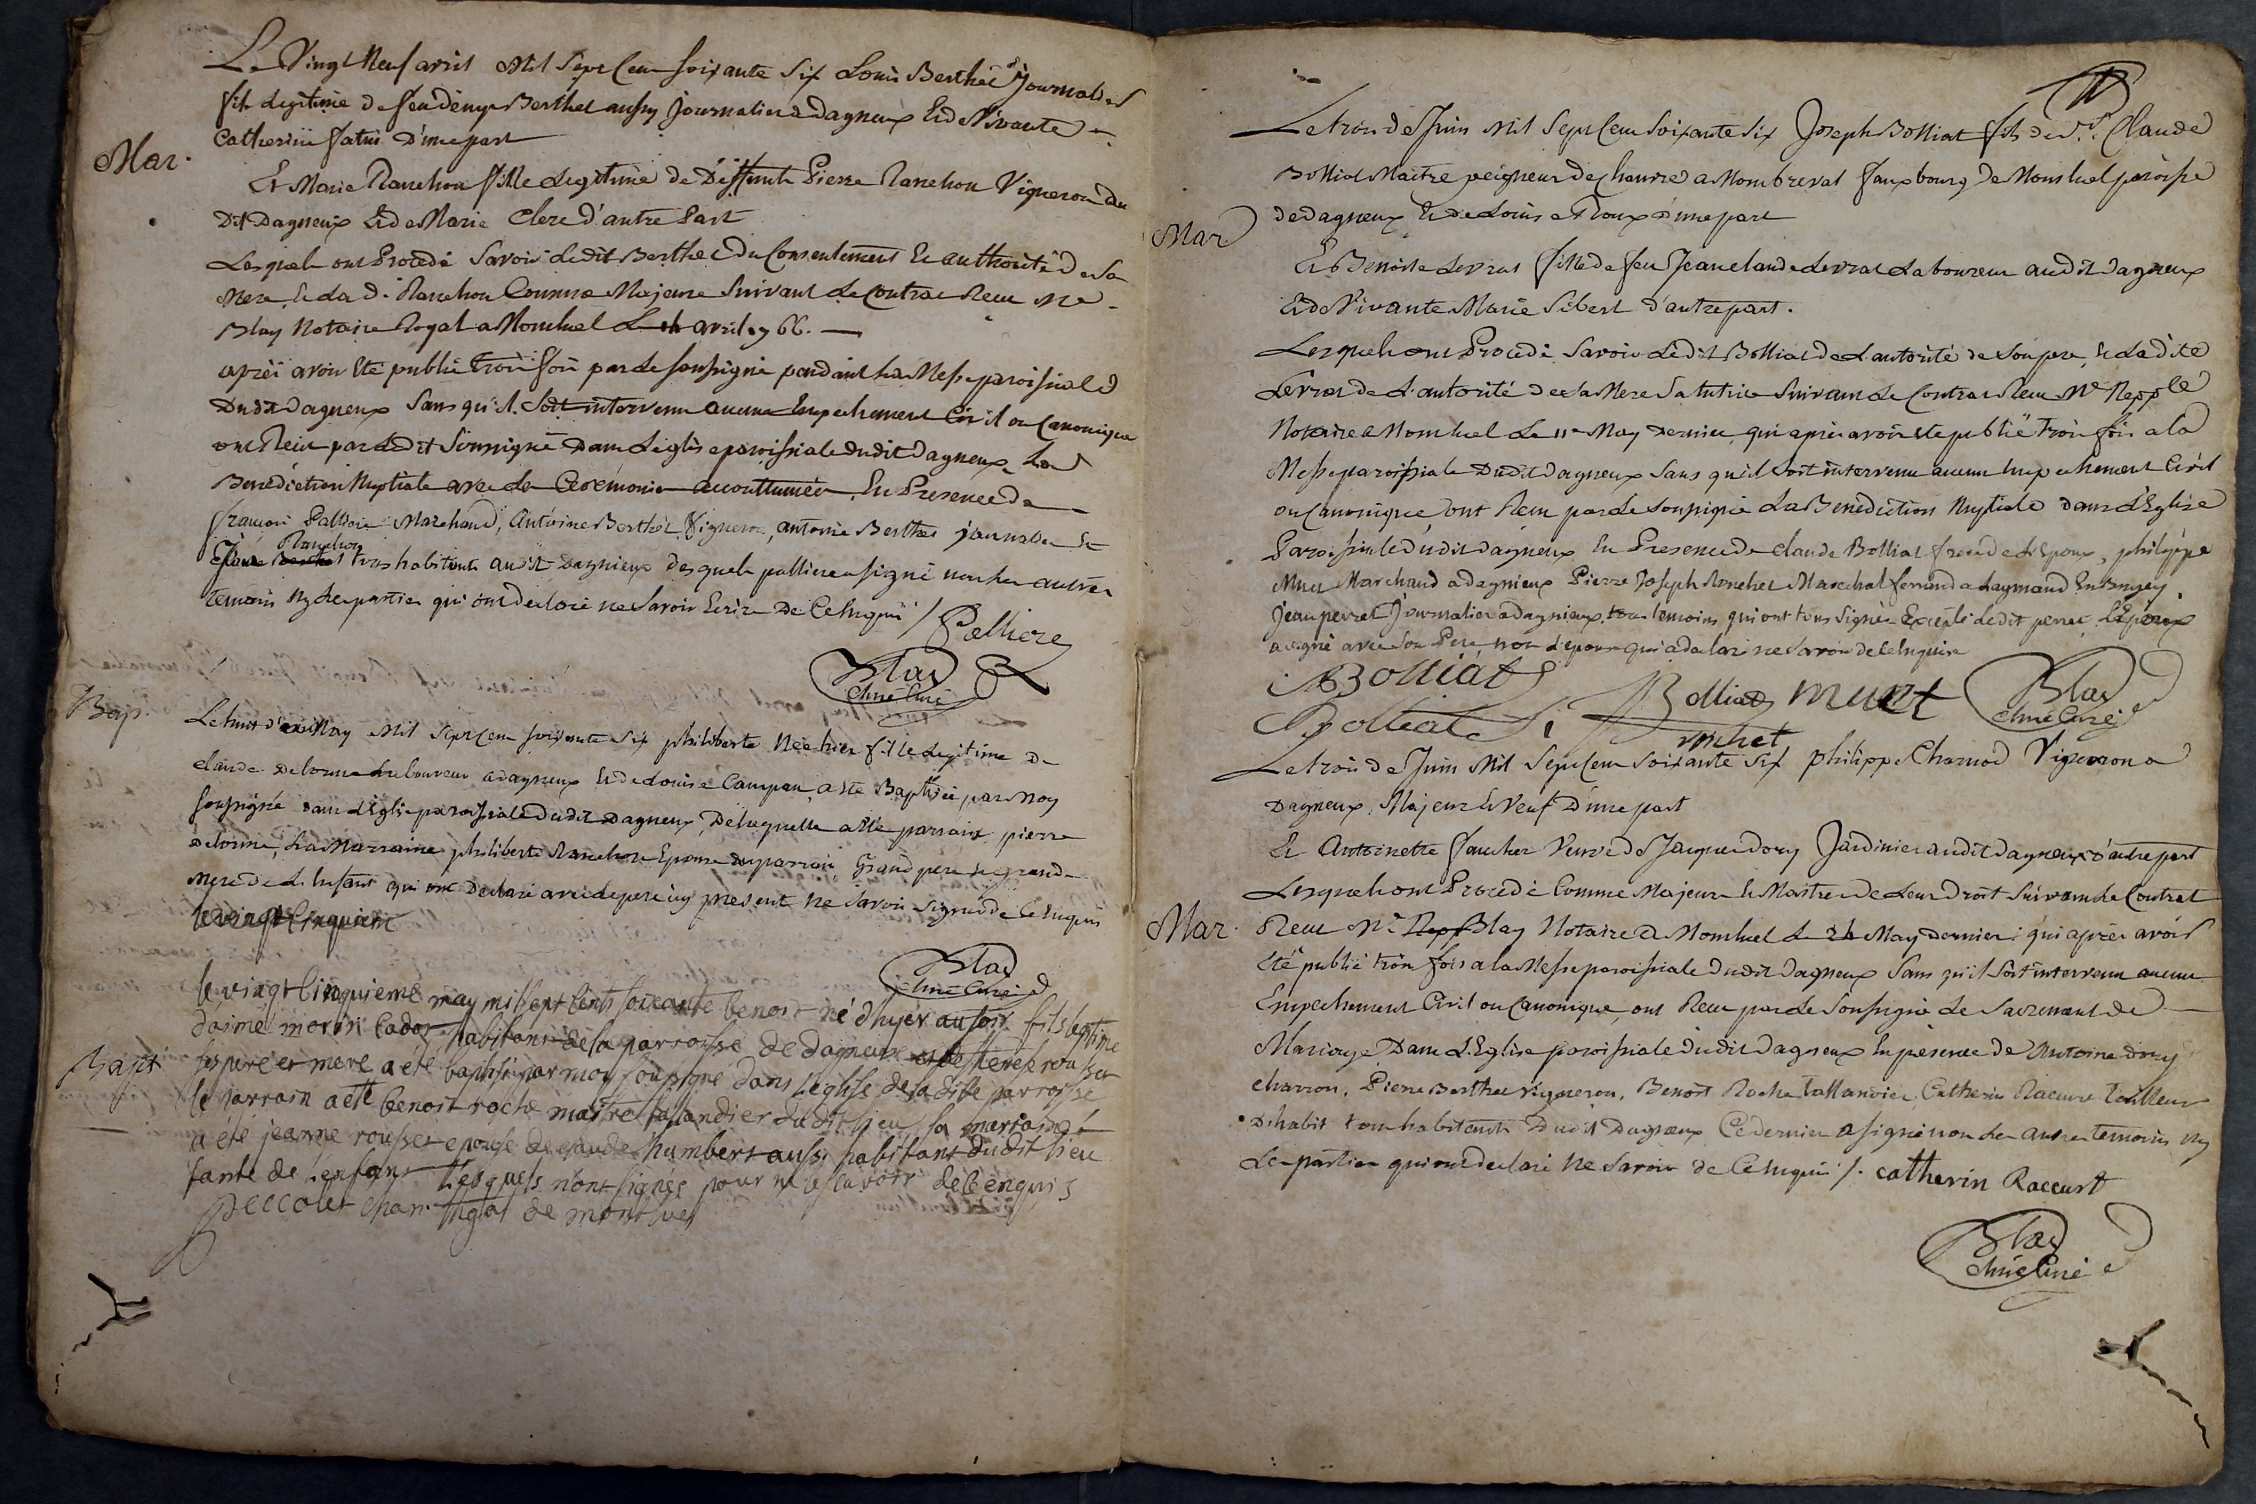 Le Vingt Neuf avril Mil Sept Cent soixante Six Louis Berthet Journalier
fils Legitime de feu denys Berthet aussy Journalier a Dagneux Et de Vivante
Catherine D'une part
Mar.
Et Marie Ranchon fille Legitime de Deffunt Pierre Ranchon Vigneron du
Dit Dagneux Et de Marie Clerc d'autre Part
Lesquels ont Procedé Savoir Ledit Berthet du Consentement Et authorité de Sa
Mere, Et La d. Ranchon Comme Majeure Suivant Le Contrat Reçu Me
Blay Notaire Royal a Montluel Le avril 1766.
après avoir Eté publié trois fois par Le soussigné pendant La Messe paroissiale
Dudit Dagneux Sans qu'il Soit intervenu aucun Empechement Civil ou Canonique
ont Reçu par Ledit Soussigné Dans L'eglise paroissiale dudit Dagneux La
Benediction Nuptiale avec Les Ceremonies accouttumées, En Presence de
françois Palliere Marchand, Antoine Berthet Vigneron, antoine Berthet journalier Et
Ranchon
tous habitants audit Dagnieux desquels palliere a signé non les autres
temoins Ny Les parties qui ont declaré ne Savoir Ecrire De Ce Enquis /. Palliere
Blay
Curé
Bap.
Le huit May Mil Sept Cent soixante Six philiberte Née hier fille Legitime De
claude Delorme Laboureur a dagneux Et de Louise Campan, a eté Baptisée par Moy
soussigné dans L'Eglise paroissiale Dudit Dagneux, De laquelle a Eté parrain pierre
Delorme, La Marraine philiberte Ranchon Epouse du parrain, Grand pere Et grand
Mere de L'Enfant qui ont Declaré avec Le pere icy present Ne Savoir Signer de Ce Enquis
le vingt Cinquieme
Blay
Curé
le vingt Cinquieme may mil sept cents soixante benoit né d'hyer au soir fils legitime
d'aimé habitant de la parroisse de dagneux
ses pere et mere a eté baptisé par moy soussigné dans l'eglise de la ditte parroisse
Bapt
le parrain a eté benoit roche maitre talandier dudit lieu la marraine
a eté jeanne rousset epouse de claude humbert aussi habitant du dit lieu
tante de l'enfant lesquels n'ont signés pour ne le savoir de ce enquis
Peccolet chan. de montluel
Le trois de Juin Mil Sept Cent Soixante Six Joseph Bolliat fils de Sr. Claude
Bolliat Maitre peigneur de Chanvre a Mombreval fauxbourg de Montluel paroisse
de dagneux Et de Louise Roux d'une part
Mar
Et Benoite Levrat fille de feu Jean claude Levrat Laboureur audit Dagneux
Et de Vivante Marie Sibert d'autre part.
Lesquels ont Procedé Savoir Ledit Bolliat de L'autorité de Son pere, Et Ladite
Levrat de L'autorité de sa Mere Sa tutrice Suivant Le Contrat Reçu Me
Notaire a Montluel Le 11e May Dernier, qui après avoir eté publié trois fois a la
Messe paroissiale Dudit Dagneux Sans qu'il Soit intervenu aucun Empechement Civil
ou Canonique, ont Reçu par Le Soussigné La Benediction Nuptiale dans L'Eglise
Paroissiale dudit Dagneux En Presence de claude Bolliat frere de L'Epoux, philippe
Munt Marchand a dagnieux Pierre Joseph Ronchet Marechal ferrand a Laymand En Bugey,
Jean perret Journalier a Dagnieux, tous temoins, qui ont tous Signés Excepté Ledit perret, L'Epoux
a signé avec Son Pere, non L'epouse qui a declaré ne Savoir de ce Enquise
Bolliat
Bolliat
Bolliat
Munt
ronchet
Blay
Curé
Le trois de Juin Mil Sept Cent Soixante Six philippe Charnod Vigneron a
Dagneux, Majeur Et Veuf D'une part
Et Antoinette faucher Veuve de Jacque Dory Jardinier audit Dagneux d'autre part
Lesquels ont Procedé Comme Majeurs Et Maitres de Leur Droit Suivant Le Contrat
Mar.
Reçu Me Blay Notaire a Montluel Le 24 May Dernier; qui après avoir
Eté publié trois fois a la Messe paroissiale dudit Dagneux Sans qu'il Soit intervenu aucun
Empechement Civil ou Canonique, ont Reçu par Le Soussigné Le Sacrement de
Mariage Dans L'Eglise paroissiale dudit Dagneux En presence de Antoine Dory
charron, Pierre Berthet Vigneron, Benoit Roche tallandier, Catherin Raccurt tailleur
D'habit tous habitants Dudit Dagneux, Ce dernier a signé non Les autres temoins Ny
Les parties qui ont declaré Ne Savoir de Ce Enquis /. catherin Raccurt
Blay
Curé